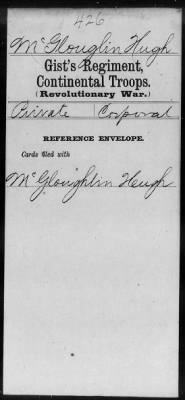 426
McGlouglin Hugh
Gist's Regiment,
Continental Troops.
(Revolutionary War.)
Private Corporal
REFERENCE ENVELOPE.
Cards filed with
McGloughlin Hugh